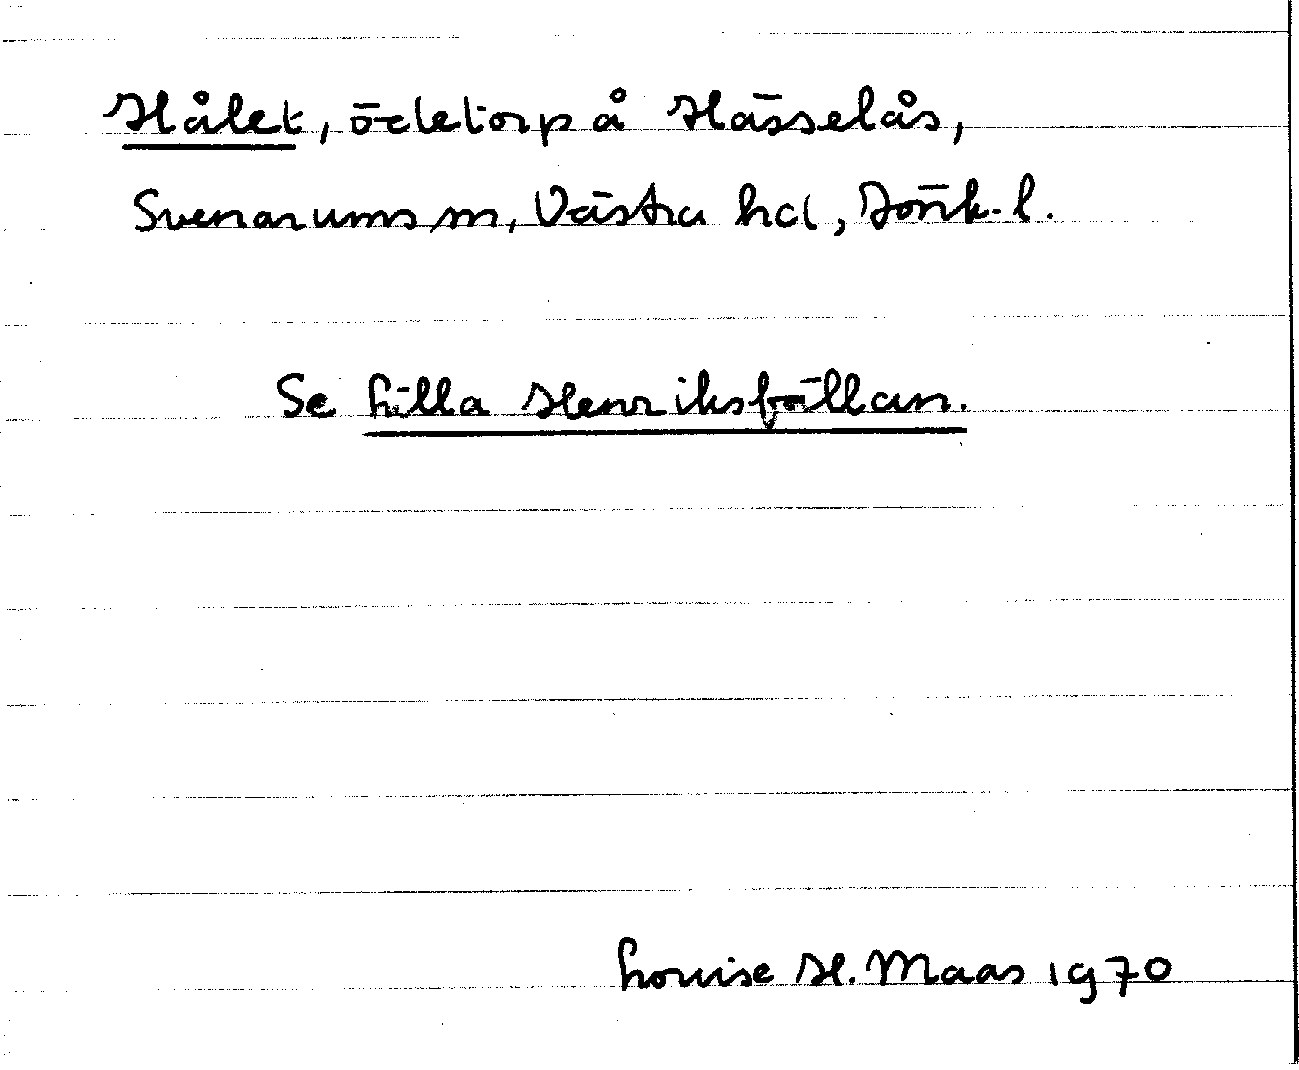 Hålet, ödetorp på Hässelås,
Svenarums sn, Västra hd, Jönk. l.
Se Lilla Henriksfällan.
Louise H. Maas 1970